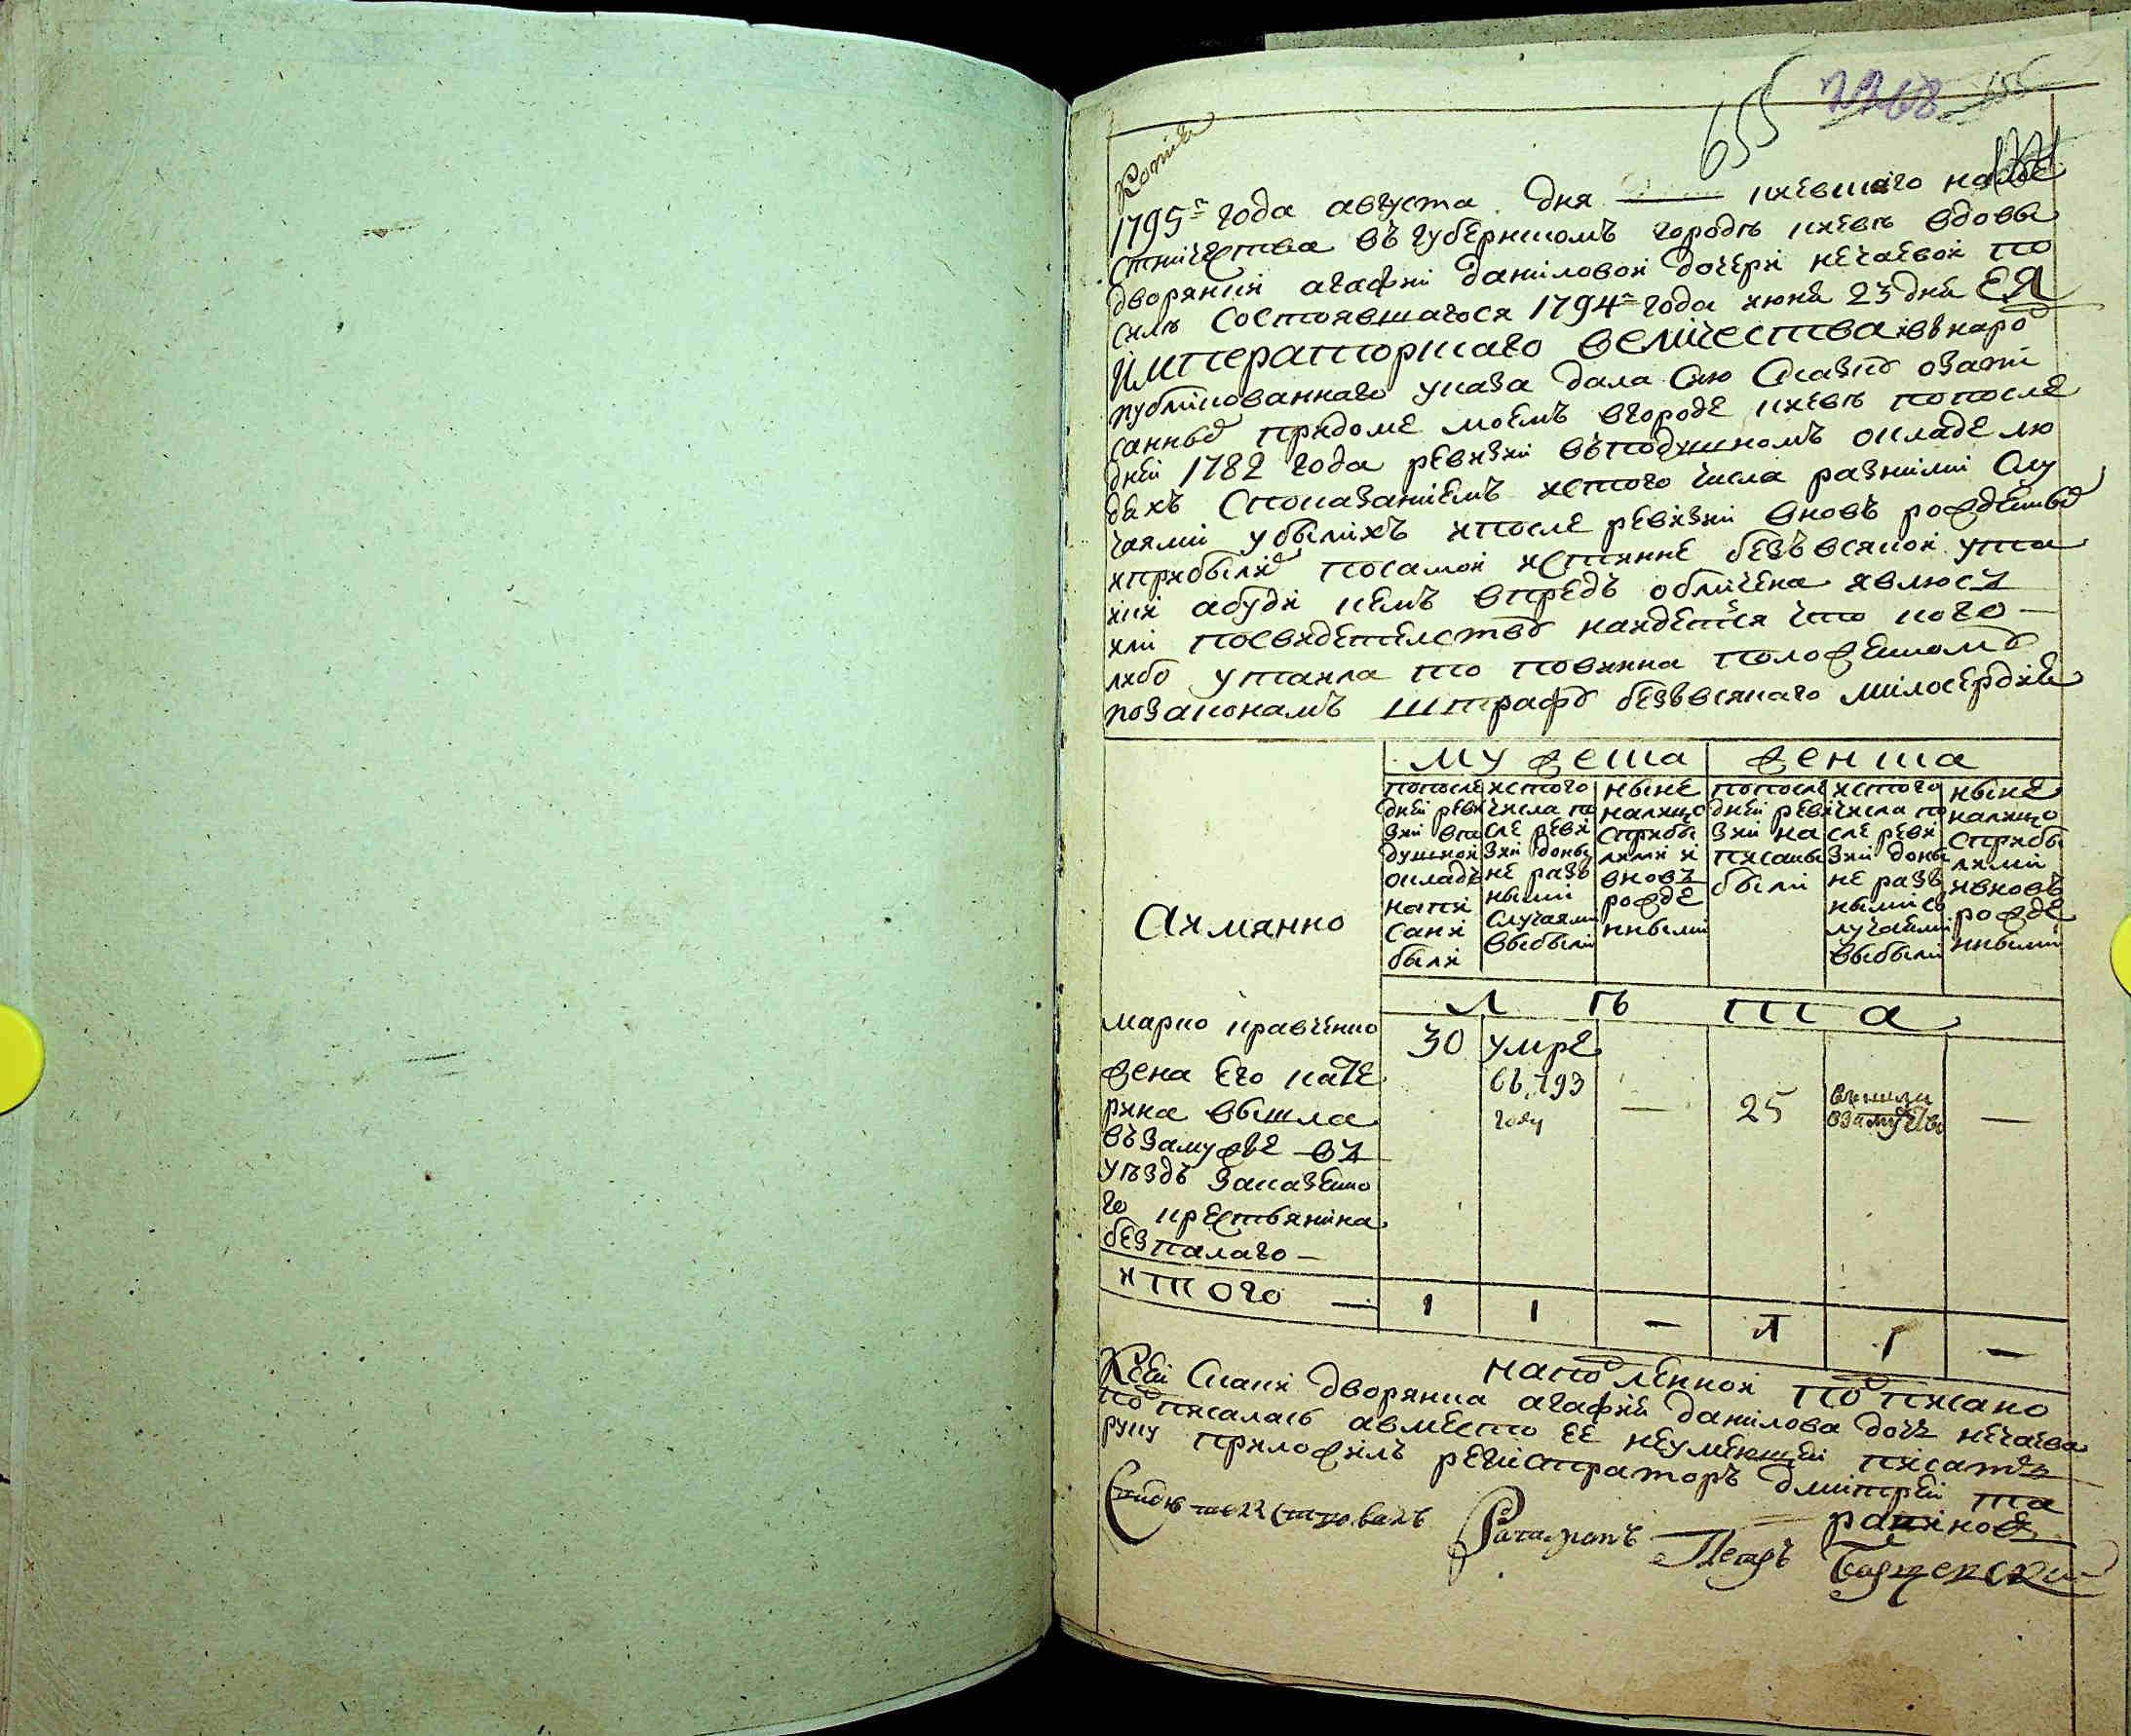 655
Копия
1795г года августа дня киевшаго наме
стничества въ губернскомъ городѣ киевѣ вдовы
дворянки агафьи даниловой дочери нечаевой по
силѣ состоявшагося 1794г года июня 23 дня ЕЯ
императорскаго величества въ народ
публикованнаго указа дала сию скаску о запи
санныхъ при доме моемъ в городе киевѣ по после
дней 1782 года ревизии въ подушномъ окладе лю
дяхъ с показаниемъ из того числа разними слу
чаями убылихъ и после ревизии вновь рожденных
и прибылих по самой истинне безъ всякой ута
йки а буди кемъ впредь обличена явлюсь
или по свидетелству найдется что кого —
либо утаила то повинна положенному
по законамъ штрафу без всякаго милосердия
Аимянно
мужеска
женска
по после
дней реви
зии в по
душной
окладъ
напи
сани
были
ис того
числа по
сле реви
зии доны
не разъ
ными
случаями
выбыли
ныне
налицо
с прибы
лими и
вновъ
рожде
нными
по после
дней реви
зии на
писаны
были
ис того
числа по
сле реви
зии доны
не разъ
ными с
лучаями
выбыли
ныне
налицо
с прибы
лими
и вновъ
рожде
нными
лѣта
марко кравченко
30
умре
въ 793
году
—
жена его кате
рина вышла
въ замужье въ
уѣздъ за казенно
го крестьянина
безпалаго —
25
вышла
в замужство
—
итого —
1
1
—
1
1
—
на подленной подписано
К сей скаски дворянка агафия данилова дочь нечаева
подписалась а вместо ее неумеющей писать
руку приложилъ регистраторъ дмитрей та
ранов